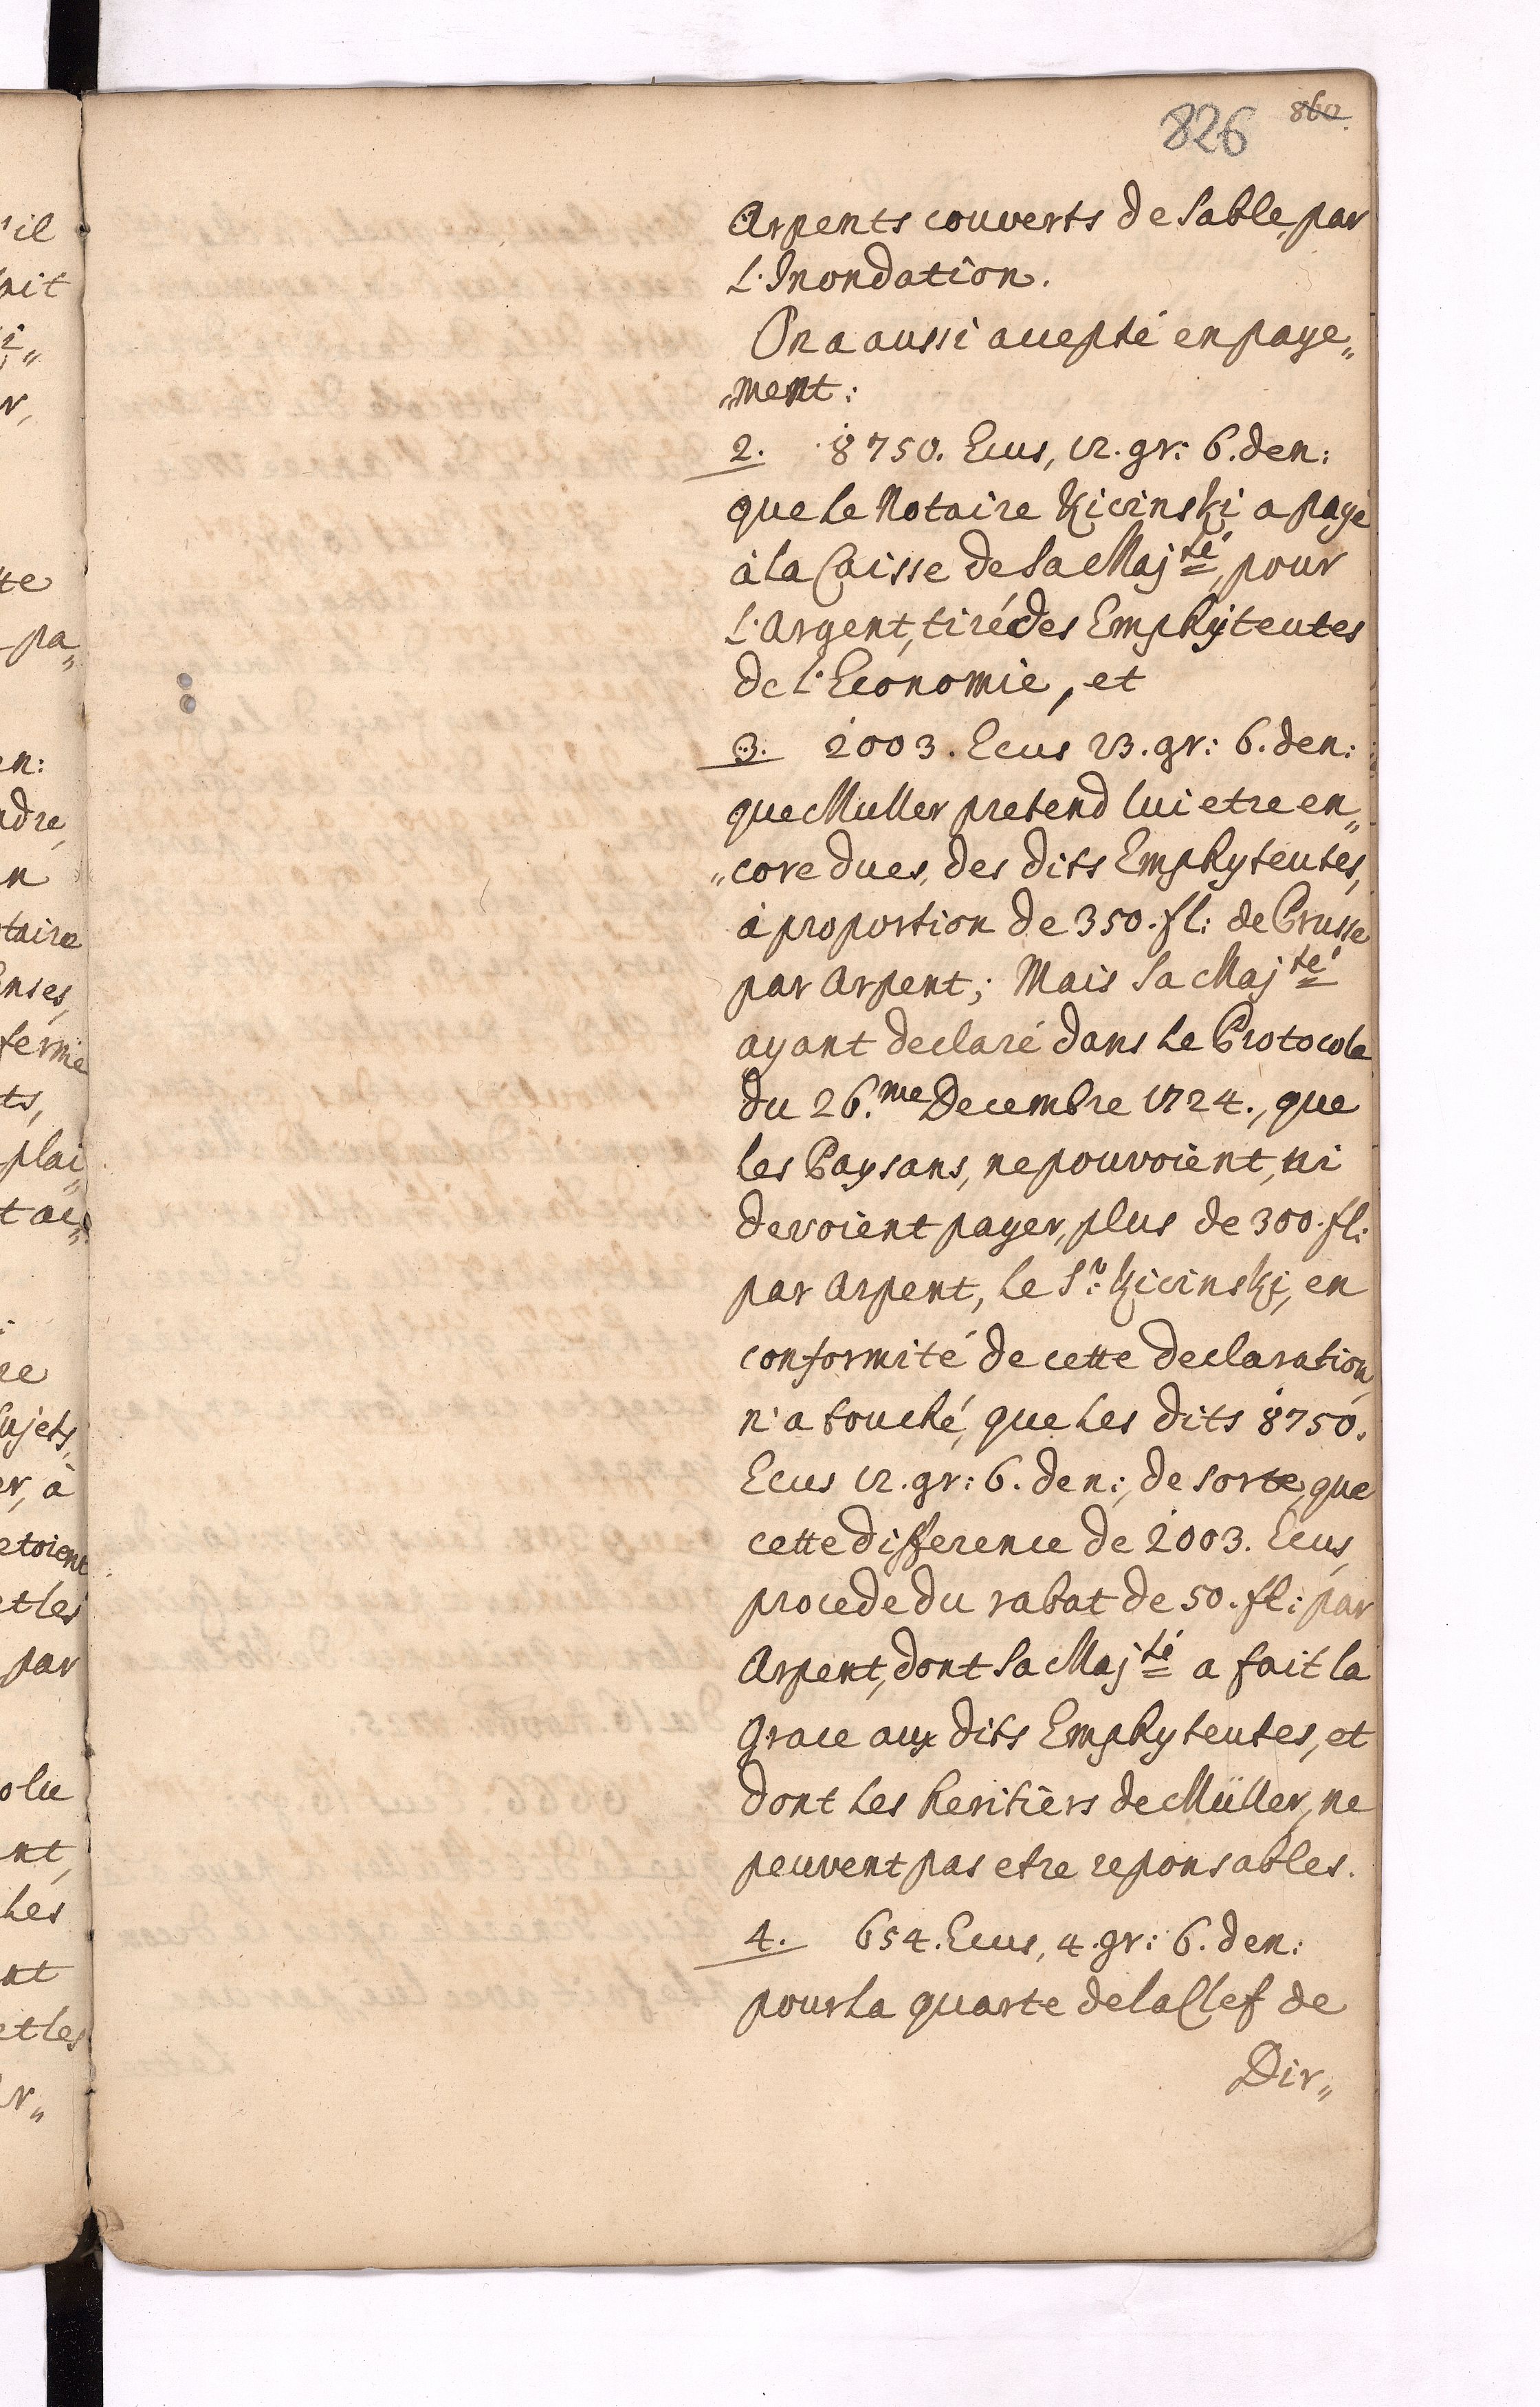 826 860.
Arpents couverts de Sable, par
L'Inondation.
On a aussi accepté en paye„
„ment:
2. 8750. Ecus, 12. gr: 6. den:
que le Notaire Kicinski a payé
à la Caisse de Sa Majté, pour
L'Argent, tiré des Emphyteutes
de l'Economie, et
3. 2003. Ecus 23. gr: 6. den:
que Muller pretend lui etre en„
„core dues, des dits Emphyteutes,
à proportion de 350. fl: de Prusse
par Arpent; Mais Sa Majté
ayant declaré dans le Protocole
du 26.me Decembre 1724., que
les Paysans, ne pouvoient, ni
devoient payer, plus de 300. fl:
par Arpent, le Sr: Kicinski, en
conformité de cette declaration,
n'a touché, que les dits 8750.
Ecus 12. gr: 6. den:, de sorte, que
cette difference de 2003. Ecus,
procede du rabat de 50. fl: par
Arpent, dont Sa Majté a fait la
Grace aux dits Emphyteutes, et
dont les heritiers de Müller, ne
peuvent pas etre reponsables.
4. 654. Ecus, 4. gr: 6. den:
pour la quarte de la Clef de
Dir„